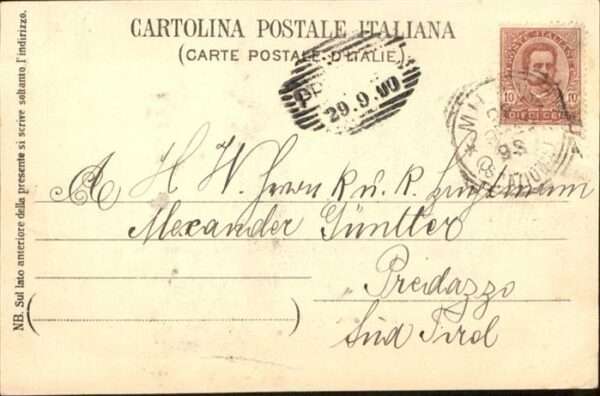 CARTOLINA POSTALE ITALIANA
(CARTE POSTALE D'ITALIE)
NB. Sul lato anteriore della presente si scrive soltanto l'indirizzo.
POSTE ITALIANE
10 10
DIECI CEN
29.9.00
98
A H W. Herrn k u. k.
Alexander Günther
Predazzo
Süd Tirol